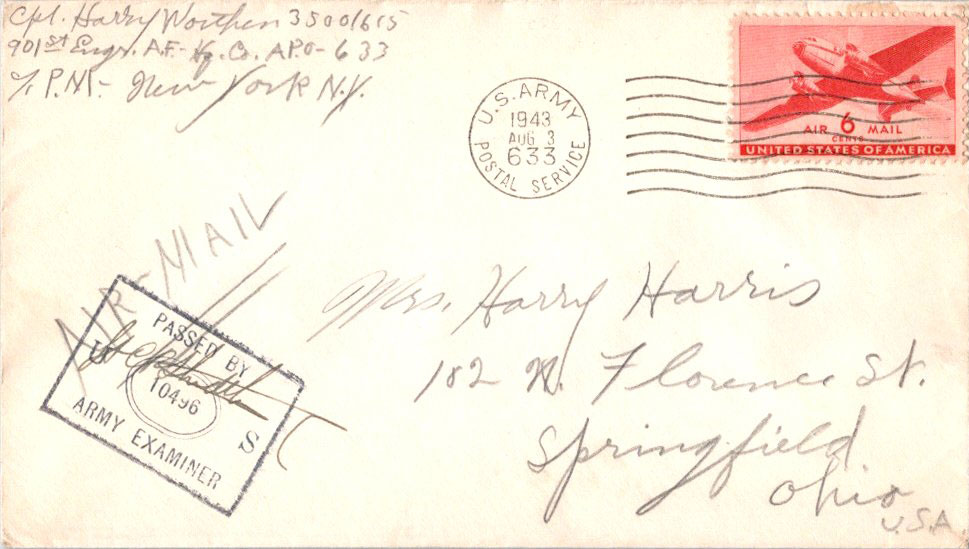 Cpl. Harry Worthen 35001615
901st Engr. A.F. Hq. Co. APO-633
% P.M. New York N.Y.
U.S. ARMY
1943
AUG 3
633
POSTAL SERVICE
AIR 6 MAIL
CENTS
UNITED STATES OF AMERICA
AIR-MAIL
Mrs. Harry Harris
182 N. Florence St.
Springfield
Ohio
U.S.A
PASSED BY
U S
10496
ARMY EXAMINER